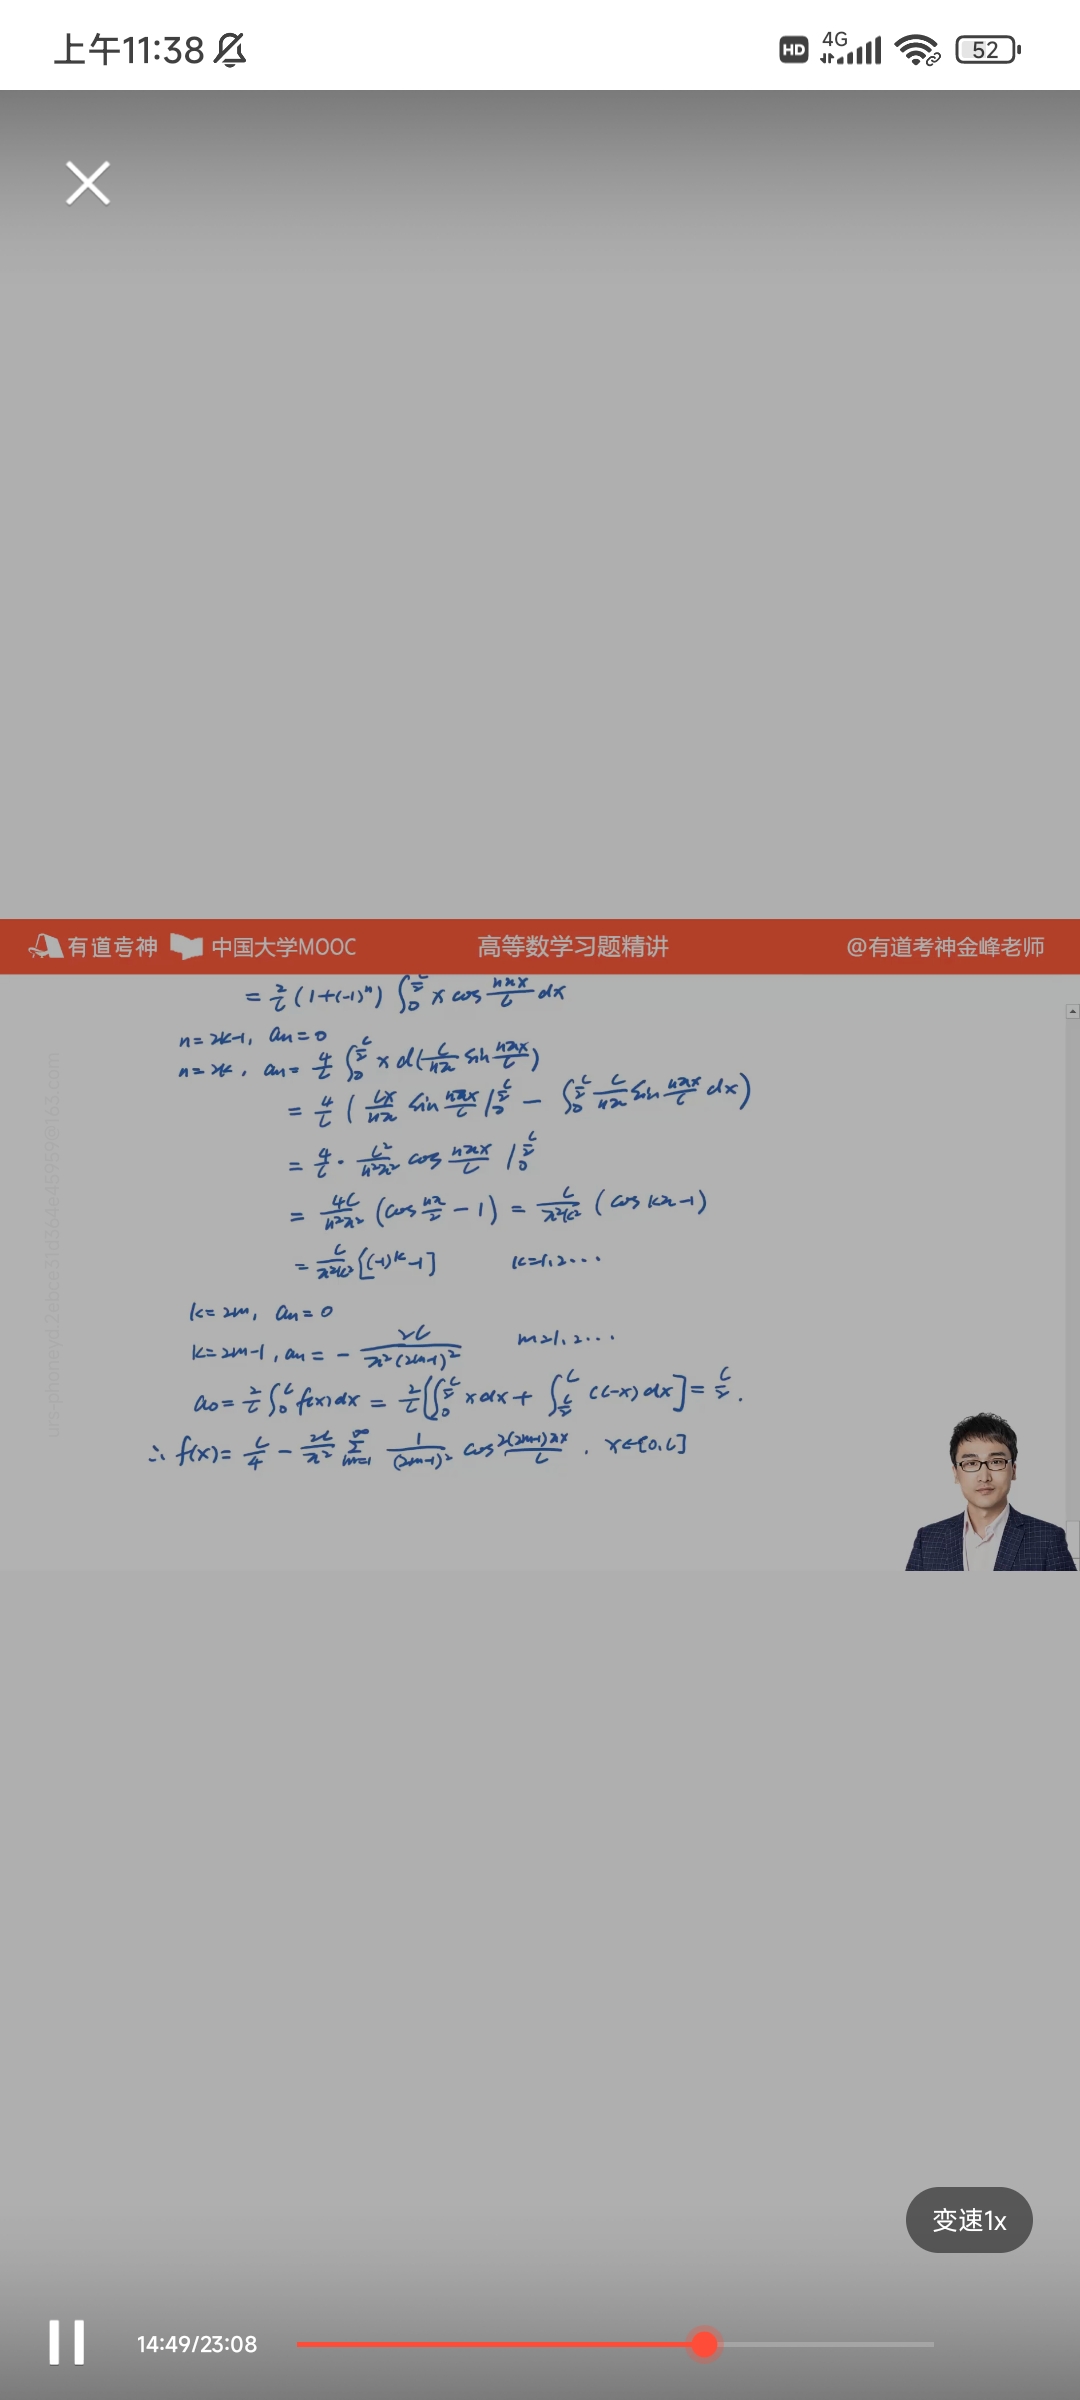 上午11:38 HD 4G 52
有道考神 中国大学MOOC 高等数学习题精讲 @有道考神金峰老师
= 2/l (1+(-1)^n) ∫_0^{l/2} x cos nπx/l dx
n=2k-1, an=0
n=2k, an= 4/l ∫_0^{l/2} x d(l/nπ sin nπx/l)
= 4/l ( lx/nπ sin nπx/l |_0^{l/2} - ∫_0^{l/2} l/nπ sin nπx/l dx)
= 4/l · l²/n²π² cos nπx/l |_0^{l/2}
= 4l/n²π² (cos nπ/2 - 1) = l/π²k² (cos kπ-1)
= l/π²k² [(-1)^k -1] k=1,2···
k=2m, an=0
k=2m-1, an= - 2l/π²(2m-1)² m=1,2···
a0= 2/l ∫_0^l f(x)dx = 2/l [∫_0^{l/2} x dx + ∫_{l/2}^l (l-x)dx] = l/2.
∴ f(x)= l/4 - 2l/π² ∑_{m=1}^∞ 1/(2m-1)² cos 2(2m-1)πx/l, x∈[0,l]
变速1x
14:49/23:08